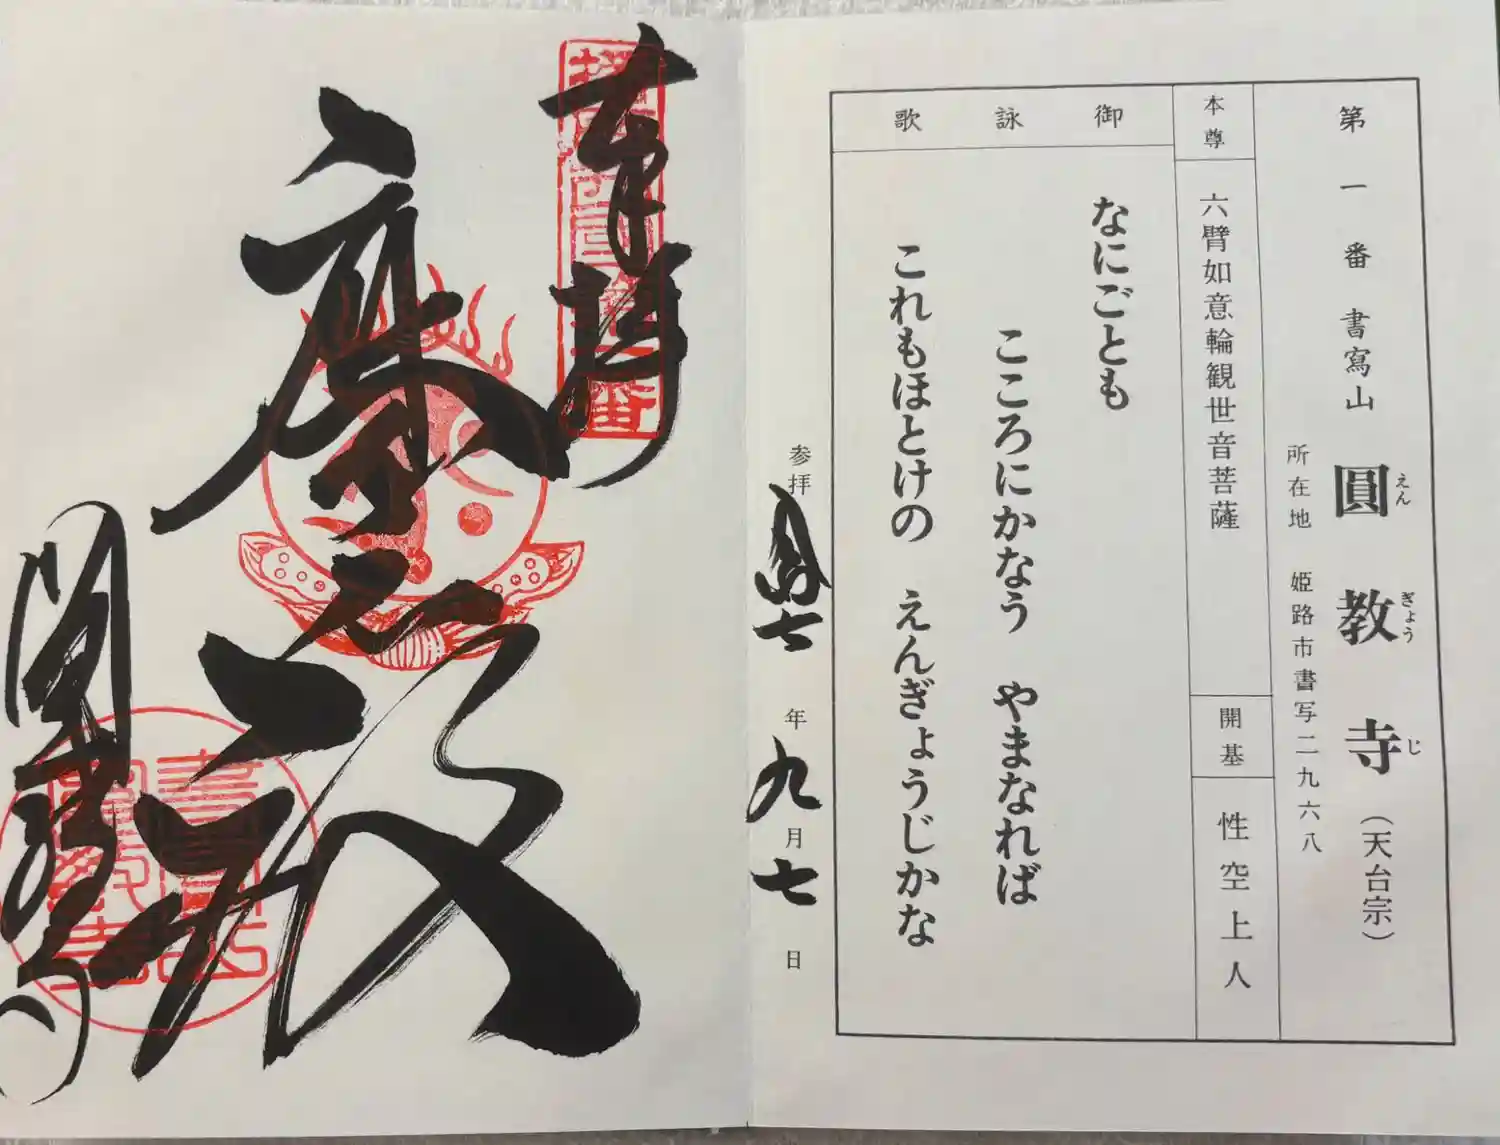 第一番 書寫山 圓教寺(天台宗)
えんぎょうじ
所在地 姫路市書写二九六八
本尊
六臂如意輪観世音菩薩
開基
性空上人
御詠歌
なにごとも
こころにかなう やまなれば
これもほとけの えんぎょうじかな
参拝 七年九月七日
奉拝
摩尼殿